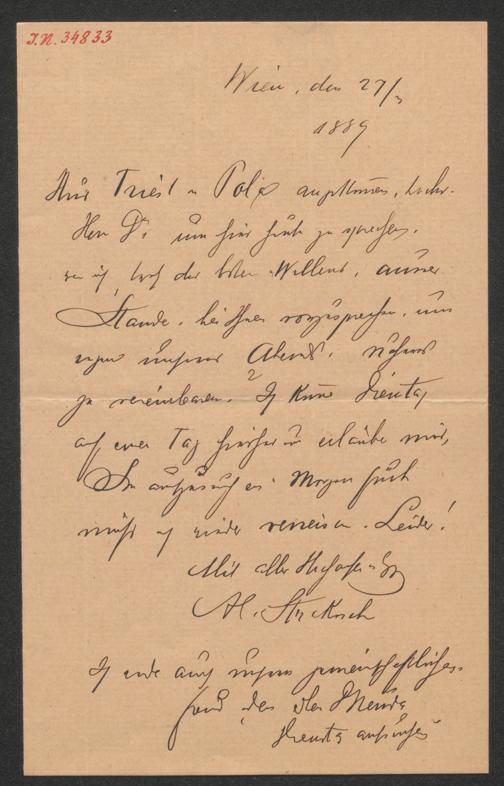 I.N. 34833
Wien, den 27/3
1889
Aus Triest u Pola angekommen, hochv.
Herr Dr um hier heute zu sprechen,
bin ich, trotz des besten Willens, ausser
Stande, bei Ihnen vorzusprechen, um
wegen unseres Abends näheres
zu vereinbaren. Ich komme Dienstag
auf einen Tag hierher u erlaube mir,
Sie aufzusuchen. Morgen früh
muß ich wieder verreisen. Leider!
Mit aller Hochach
Al. Strakosch
Ich werde auch unsern gemeinschaftlichen
Freund, den
Dienstag aufsuchen